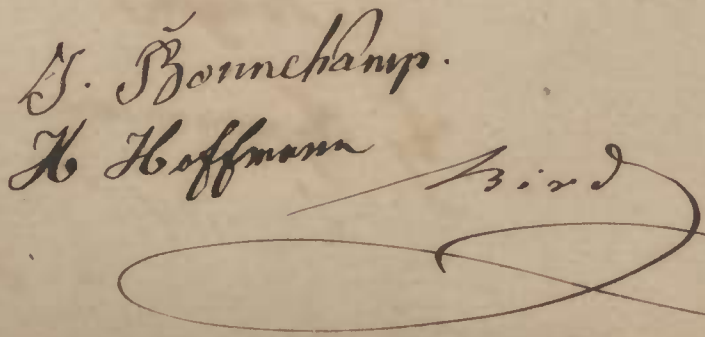 J. Bonnechamp.
H Hoffmann
Bird